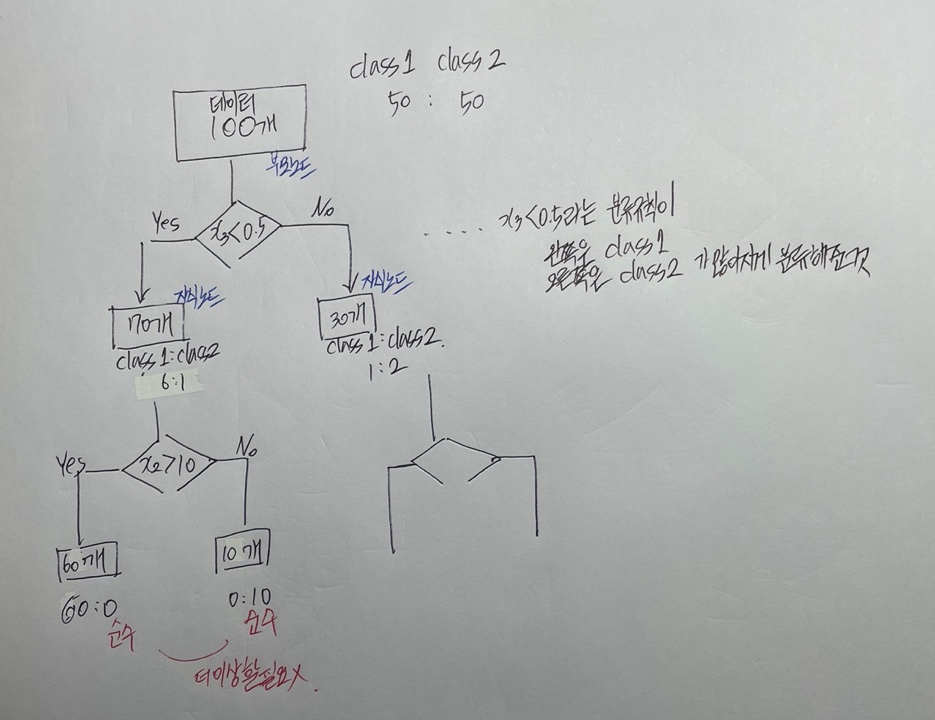 class1 class2
50 : 50
데이터
100개
부모노드
Yes
x₃<0.5
No
.... x₃<0.5라는 분류규칙이
왼쪽은 class1
오른쪽은 class2 가 많아지게 분류해준것
자식노드
70개
class1:class2
6:1
자식노드
30개
class1:class2.
1:2
Yes
x₂>10
No
60개
60:0
순수
10개
0:10
순수
더이상 할 필요X.